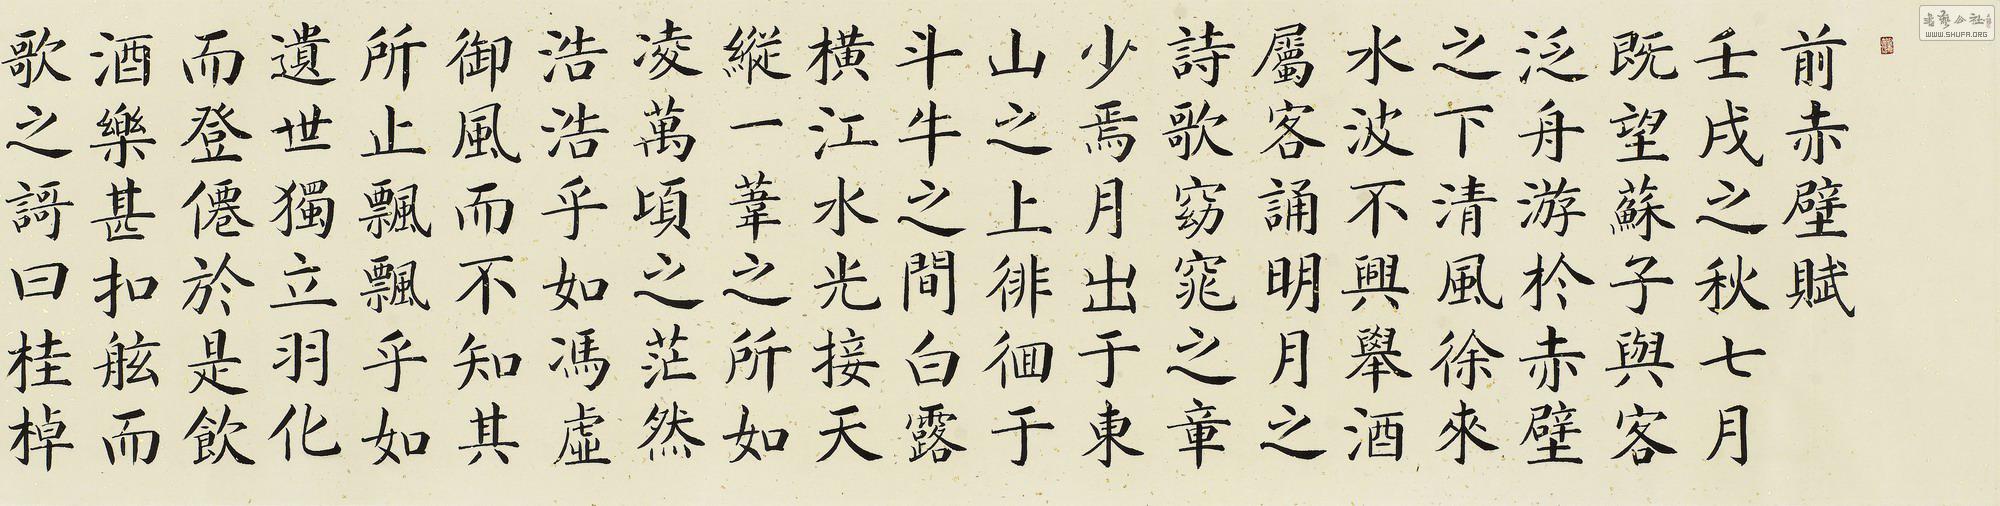 前赤壁賦
壬戌之秋七月
既望蘇子與客
泛舟游於赤壁
之下清風徐來
水波不興舉酒
屬客誦明月之
詩歌窈窕之章
少焉月出于東
山之上徘徊于
斗牛之間白露
橫江水光接天
縱一葦之所如
凌萬頃之茫然
浩浩乎如馮虛
御風而不知其
所止飄飄乎如
遺世獨立羽化
而登僊於是飲
酒樂甚扣舷而
歌之謌曰桂棹
WWW.SHUFA.ORG